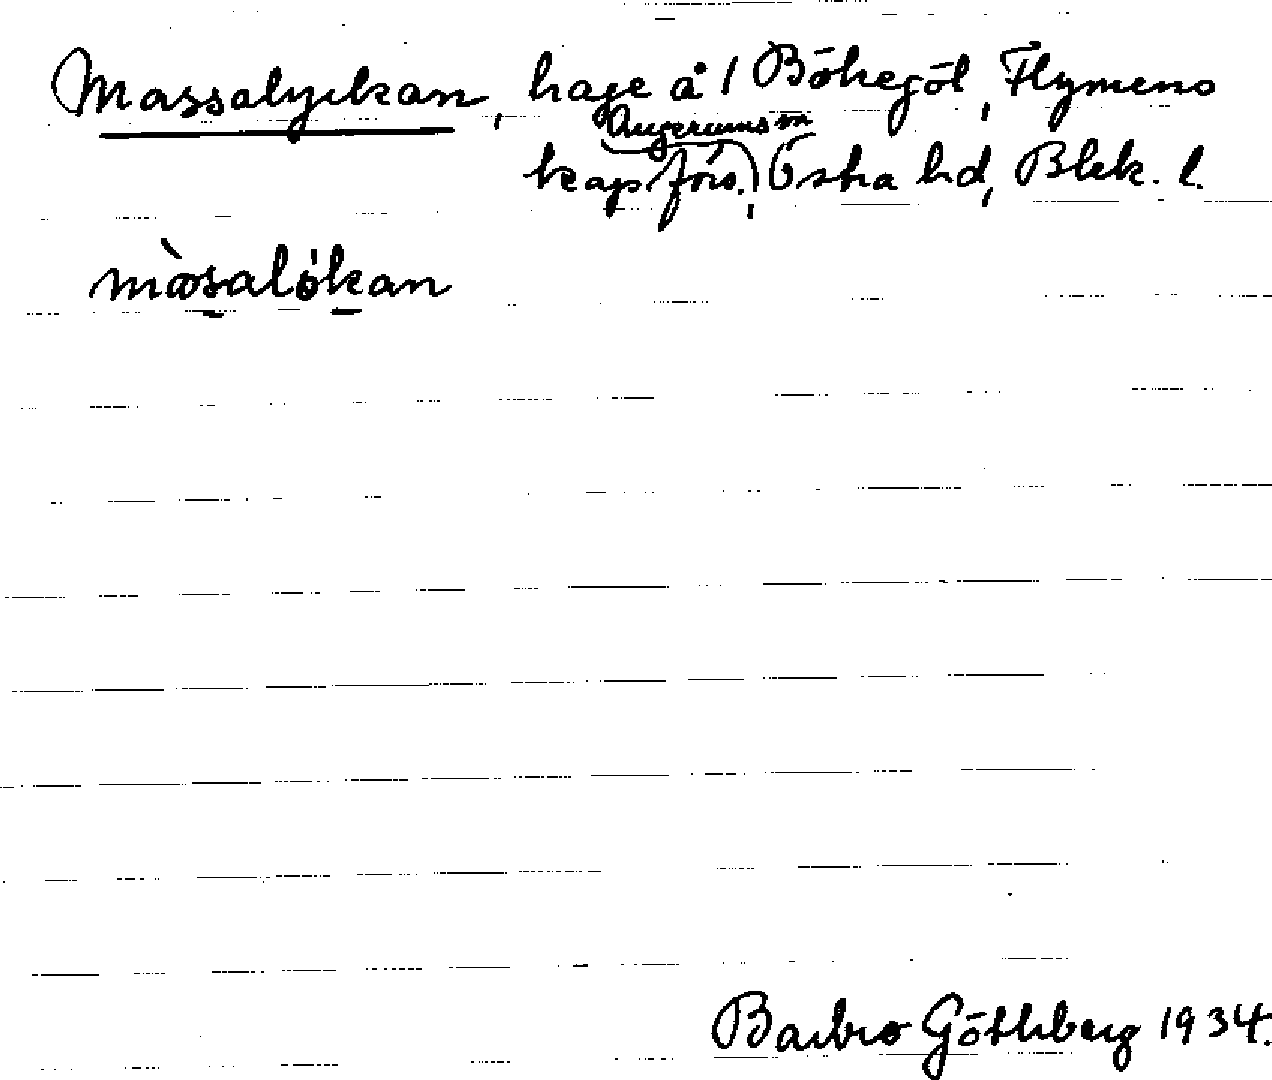 Massalyckan, hage å 1 Bökegöl, Flymens
Augerums sn
kapförs., Östra hd, Blek. l.
Barbro Göthberg 1934.